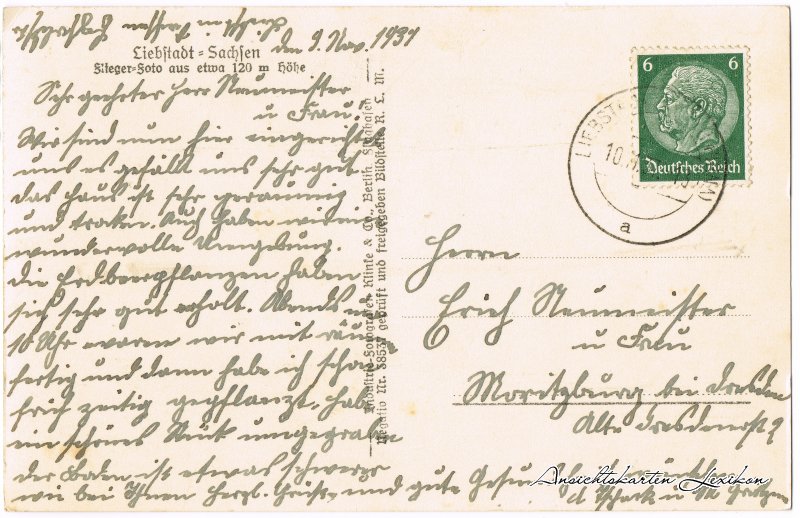 Liebstadt - Sachsen
Flieger-Foto aus etwa 120 m Höhe
den 9. Nov. 1937
Sehr geehrter Herr Neumeister
u Frau!
Wir sind nun hier eingerichtet
uns es gefällt uns sehr gut
das Haus ist sehr geräumig
und troken. Auch haben wir eine
wundervolle Umgebung.
die Erdbeerpflanzen haben
sich sehr gut erholt. Abends um
10 Uhr waren wir mit räumen
fertig und dann habe ich schon
früh zeitig gepflanzt. habe
ein schönes Stück umgegraben
der Boden ist etwas schwerer
wie bei Ihnen Herzl. Grüße und gute Gesundheit wünscht
Industrie-Fotografen Klinke & Co., Berlin Flughafen
Negativ Nr. 38537 geprüft und freigegeben Bildstelle R. L. M.
6 6
Deutsches Reich
LIEBSTADT
a
Herrn
Erich Neumeister
u Frau
Moritzburg bei Dresden
Alte Dresdenerst 9
Ansichtskarten Lexikon